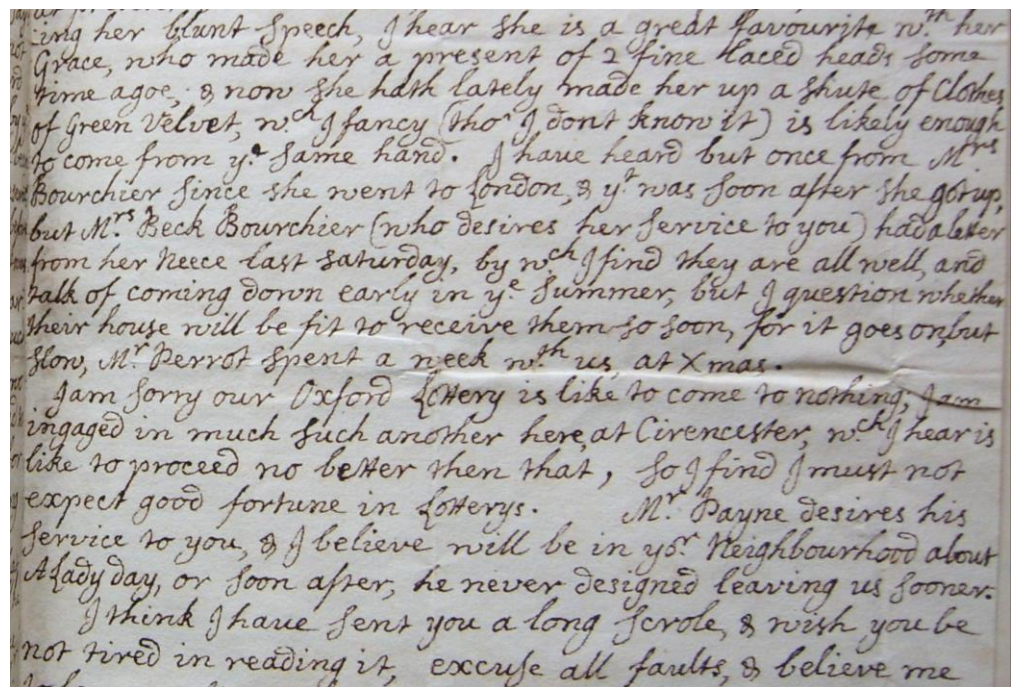 ing her blunt speech, I hear she is a great favourite wth her
Grace, who made her a present of 2 fine laced heads some
time agoe, & now she hath lately made her up a shute of Clothes
of Green Velvet, wch I fancy (tho' I dont know it) is likely enough
to come from ye same hand. I have heard but once from Mrs
Bourchier since she went to London, & yt was soon after she got up,
but Mrs Beck Bourchier (who desires her service to you) had a letter
from her Neece last saturday, by wch I find they are all well, and
talk of coming down early in ye summer, but I question whether
their house will be fit to receive them so soon, for it goes on, but
slow, Mr Perrot spent a week wth us, at Xmas.
I am sorry our Oxford Lottery is like to come to nothing; I am
ingaged in much such another here, at Cirencester, wch I hear is
like to proceed no better then that, so I find I must not
expect good fortune in Lotterys. Mr Payne desires his
service to you, & I believe will be in yor Neighbourhood about
A Lady day, or soon after, he never designed leaving us sooner.
I think I have sent you a long scrole, & wish you be
not tired in reading it, excuse all faults, & believe me